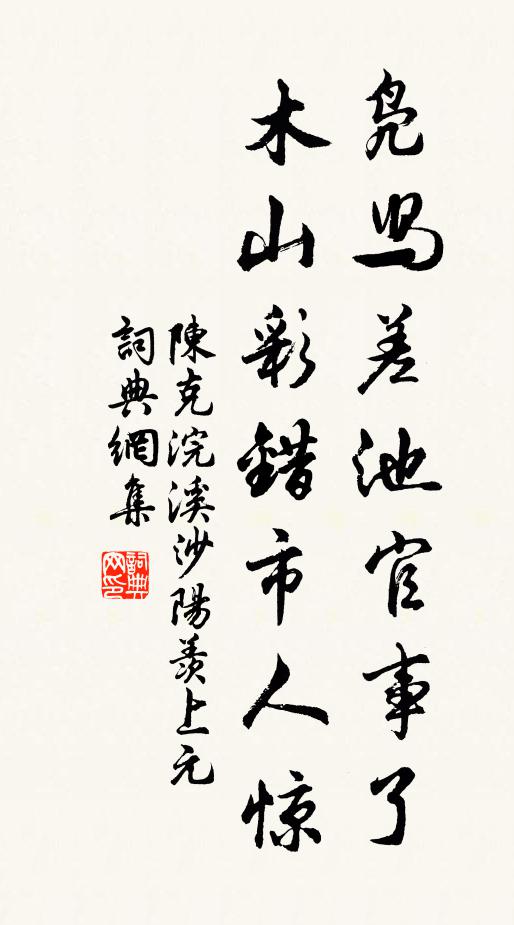 凫舄差池官事了
木山彩錯市人惊
陳克浣溪沙陽羨上元
詞典網集
詞典
网印